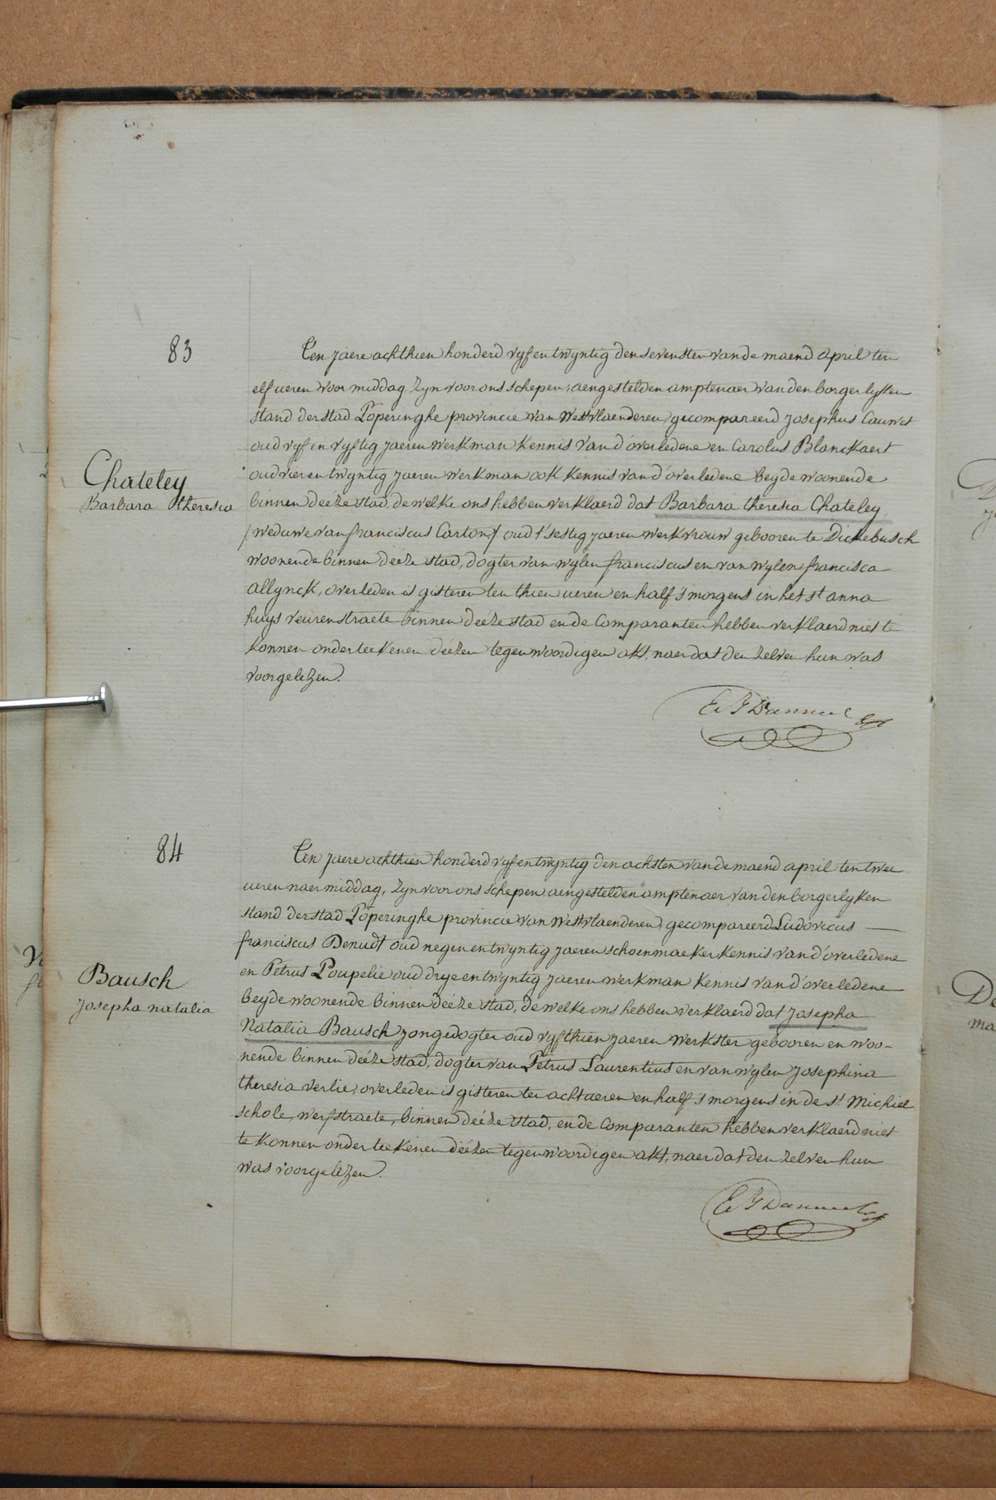 83
Een jaere achthien honderd vyf en twyntig den sevensten van de maend april ten
elf ueren voor middag zyn voor ons schepen aengestelden amptenaer van den borgerlyken
stand der stad Poperinghe provincie van Westvlaenderen gecompareerd Josephus Cauwet
oud vyf en vyftig jaeren werkman kennis van d'overledene en Carolus Blanckaert
oud vier en twyntig jaeren werkman ook kennis van d'overledene beyde woonende
binnen deéze stad, de welke ons hebben verklaerd dat Barbara theresia Chateley
(weduwe van franciscus Carton) oud t'sestig jaeren werkvrouw gebooren te Dickebusch
woonende binnen deéze stad, dogter van wylen franciscus en van wylen francisca
allynck, overleden is gisteren ten thien ueren en half s'morgens in het st anna
huys veurenstraete binnen deéze stad en de Comparanten hebben verklaerd niet te
konnen onderteekenen deézen tegenwoordigen akt, naer dat den zelven hun was
voorgelézen.
Chateley
Barbara theresia
84
Een jaere achthien honderd vyf en twyntig den achsten van de maend april ten twee
ueren naer middag, zyn voor ons schepen aengestelden amptenaer van den borgerlyken
stand der stad Poperinghe provincie van Westvlaenderen, gecompareerd Ludovicus
franciscus Derudt oud negen en twyntig jaeren schoenmaeker kennis van d'overledene
en Petrus Poupelie oud drye en twyntig jaeren werkman kennis van d'overledene
beyde woonende binnen deéze stad, de welke ons hebben verklaerd dat Josepha
Natalia Bausch jongedogter oud vyfthien jaeren werkster gebooren en woo-
nende binnen deéze stad, dogter van Petrus Laurentius en van wylen Josephina
theresia verlie, overleden is gisteren ten acht ueren en half s'morgens in de st Michiel
schole, werfstraete, binnen deéze stad, en de Comparanten hebben verklaerd niet
te konnen onderteekenen deézen tegenwoordigen akt, naer dat den zelven hun
was voorgelézen.
Bausch
Josepha natalia